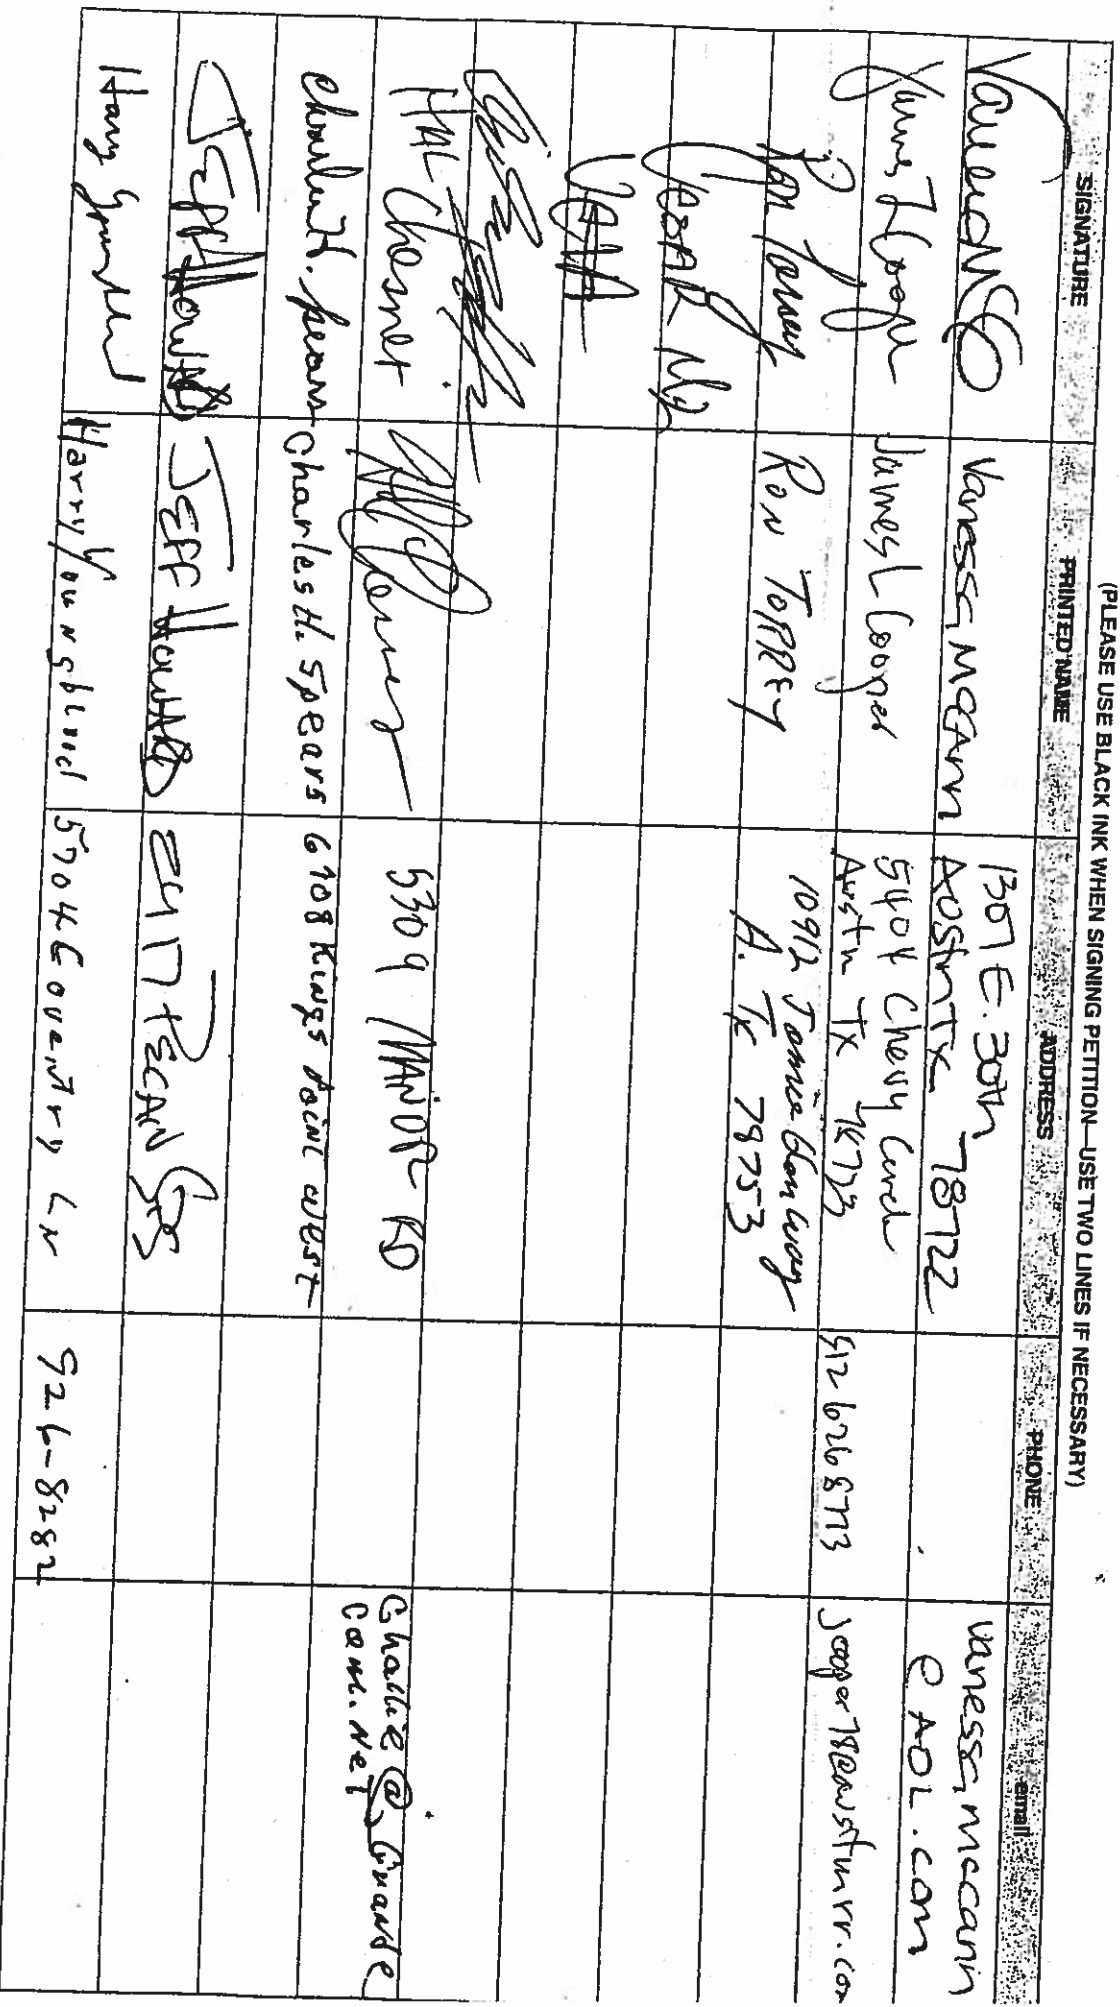 (PLEASE USE BLACK INK WHEN SIGNING PETITION—USE TWO LINES IF NECESSARY)
SIGNATURE PRINTED NAME ADDRESS PHONE email
Vanessa McCann 1307 E. 30th vanessa, mccann
Austin Tx 78722 @ AOL.com
James L Cooper James L Cooper 5404 Chevy Circle
Austin Tx 78723 512 626 8773
Ron Torrey RON TORREY 10912 Jamie Glen Way
A. Tx 78753
HAL Chesnet 5309 MANOR RD
Charles H. Spears Charles H. Spears 6708 Kings Point West Charlie @ Grande
Com.Net
JEFF HOWARD JEFF HOWARD 2417 PECAN
Harry Youngblood 5704 Coventry LN 926-8282